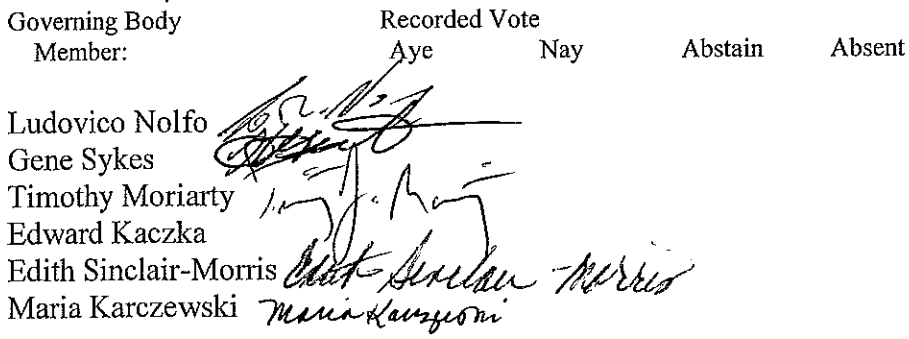 Governing Body Recorded Vote
Member: Aye Nay Abstain Absent
Ludovico Nolfo
Gene Sykes
Timothy Moriarty
Edward Kaczka
Edith Sinclair-Morris Edith Sinclair-Morris
Maria Karczewski Maria